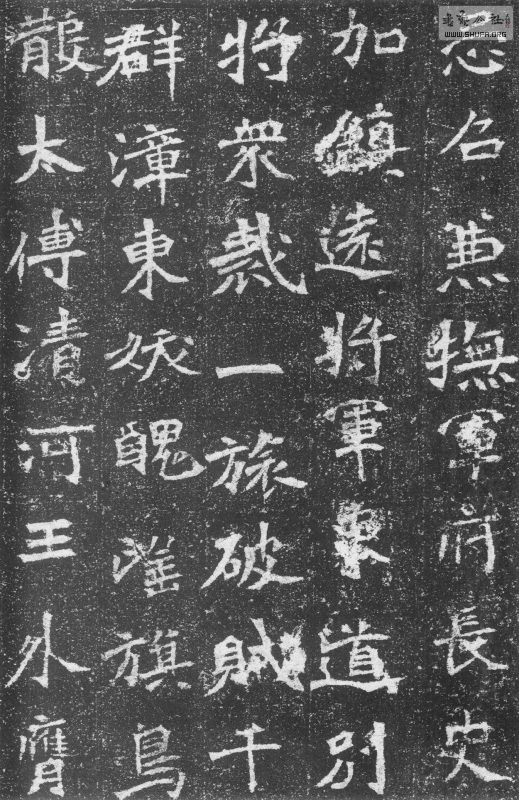 召兼撫軍府長史
加鎮遠將軍東道別
將衆裁一旅破賊千
群漳東妖醜旗鳥
散太傅清河王外膺
書法公社
WWW.SHUFA.ORG